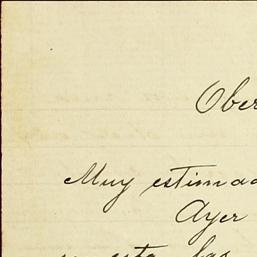 Ober
Muy estimad
Ayer